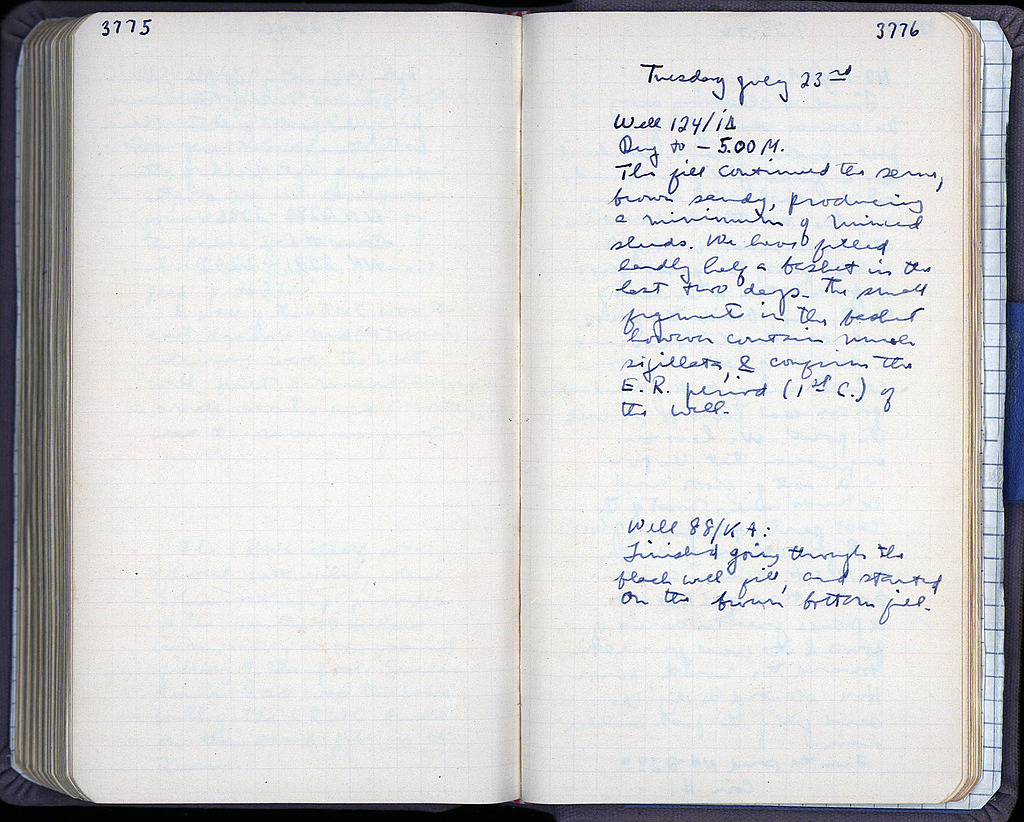 3775
3776
Tuesday July 23rd
Well 124/1Δ
Dug to – 5.00 M.
The fill continued the same,
brown sandy, producing
a minimum of minced
sherds. We have filled
hardly half a basket in the
last two days. The small
fragments in the basket
however contain much
sigillata, & confirm the
E.R. period (1st C.) of
the well.
Well 88/KA:
Finished going through the
black well fill, and started
on the brown bottom fill.